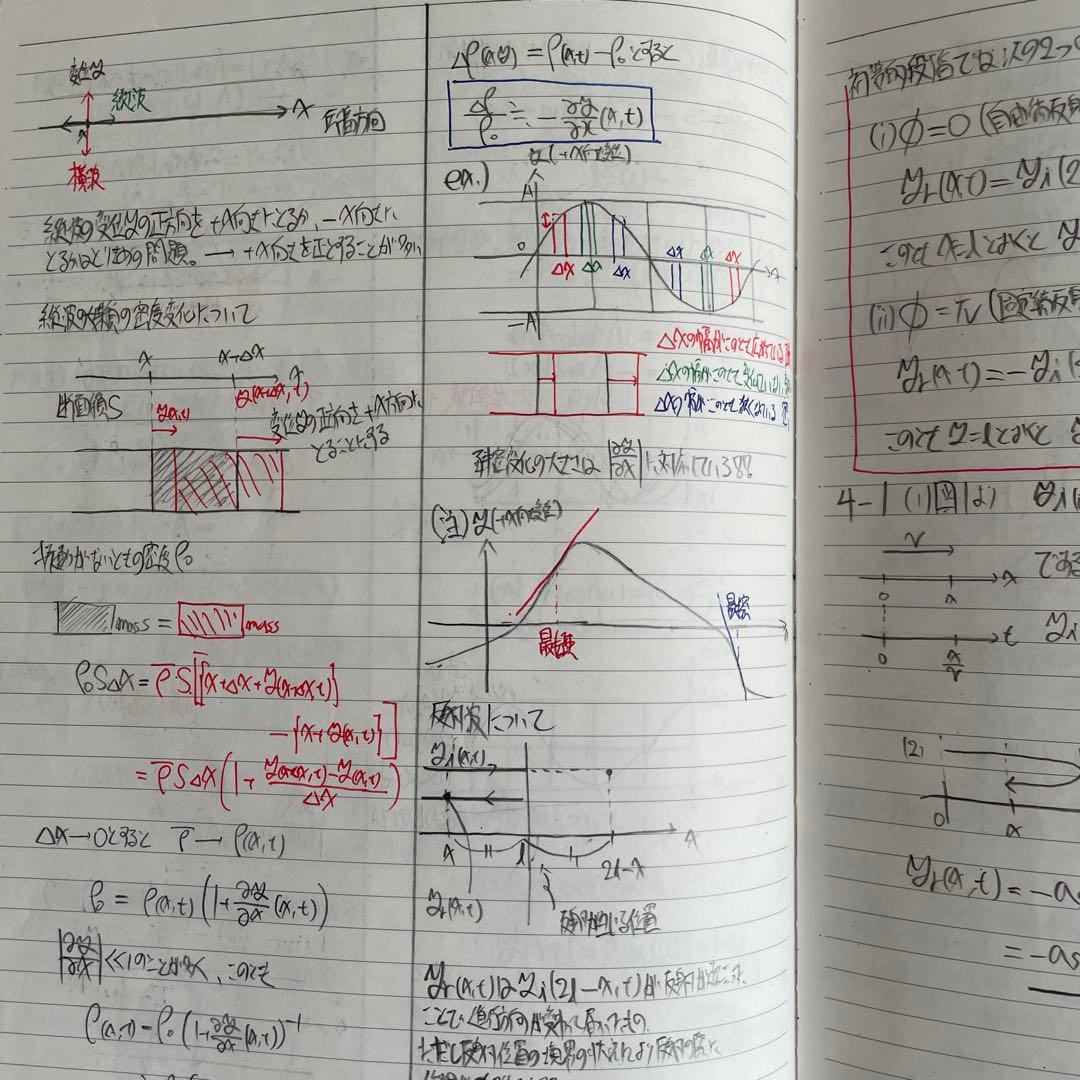 変位y
縦波
x
伝播方向
横波
縦波の変位yの正方向を+x向きにとるか、-x向きに
とるかはとりきめの問題。→ +x向きを正とすることが多い
縦波の媒質の密度変化について
x x+Δx
x
断面積S
y(x,t) y(x+Δx,t)
変位yの正方向を+x方向に
とることにする
振動がないときの密度ρ₀
mass = mass
ρ₀SΔx = ρ̄S[{x+Δx+y(x+Δx,t)}
-{x+y(x,t)}]
= ρ̄SΔx(1+ y(x+Δx,t)-y(x,t)/Δx)
Δx→0とすると ρ̄ → ρ(x,t)
ρ₀ = ρ(x,t)(1+∂y/∂x(x,t))
|∂y/∂x| <<1のことが多く、このとき
ρ(x,t) = ρ₀(1+∂y/∂x(x,t))⁻¹
Δρ(x,t) = ρ(x,t) - ρ₀とすると
Δρ/ρ₀ ≒ -∂y/∂x(x,t)
y(+x向き変位)
ex.)
A
0
Δx Δx Δx Δx Δx Δx
x
-A
Δxの幅がこのとき広がっている
Δxの幅がこのとき変化していない
Δxの幅がこのとき狭くなっている
密度変化の大きさは |∂y/∂x| に対応している
(注) y(+x向き変位)
最疎
最密
反射波について
yi(x,t)
x l 2l-x
x
yr(x,t)
反射が起こる位置
yr(x,t)はyi(2l-x,t)が反射が起こった
ことで、進行方向が変わって届いたもの
ただし反射位置の境界の状態により反射の際に
初等的段階では次の2つ
(i) φ=0 (自由端反射
yr(x,t)=yi(2
このときx=lとおくと y
(ii) φ=π (固定端反射
yr(x,t)=-yi(
このときx=lとおくと
4-1 (1)図1より yi(
v
x
0 x
である
t
0 x/v
yi
(2)
0 x
yr(x,t) = -a
= -as